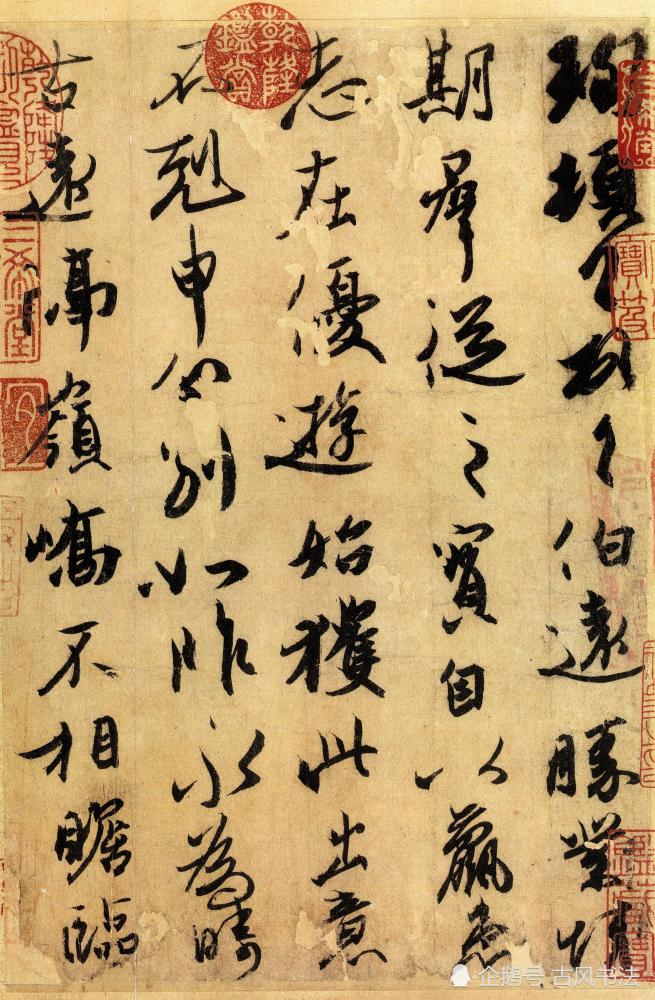 珣頓首頓首伯遠勝業情
期羣從之寶自以羸患
志在優遊始獲此出意
不剋申分別如昨永為疇
古遠隔嶺嶠不相瞻臨
乾隆鑑賞
三希堂
企鹅号 古风书法